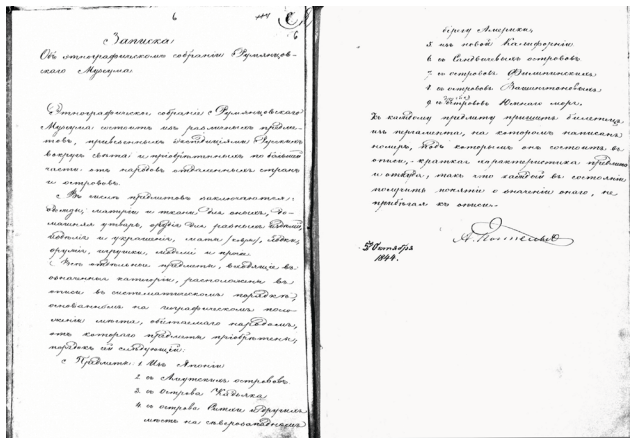 6
6
Записка
Объ этнографическомъ собраніи Румянцов-
скаго Музеума
Этнографическое собраніе Румянцовскаго
Музеума состоитъ изъ разныхъ предме-
товъ, привезенныхъ Русскихъ
вокругъ свѣта и пріобрѣтенныхъ по большей
части отъ народовъ отдаленныхъ странъ
и острововъ.
Въ числѣ предметовъ заключаются:
одежды, и ткани для оныхъ, до-
машняя утварь, орудія для разныхъ
и украшенія, лодки,
оружіе, игрушки, и проч.
Всѣ предметы, входящіе въ
означенныя категоріи, расположены въ
описи въ систематическомъ порядкѣ,
основанномъ на географическомъ поло-
женіи мѣста, обитаемаго народомъ,
отъ котораго предметы пріобрѣтены;
порядокъ сей слѣдующій:
Предметы: 1 Изъ Японіи
2 съ Алеутскихъ острововъ
3 съ острова Кадьяка
4 съ острова Ситхи и другихъ
мѣстъ на сѣверозападномъ
берегу Америки,
5 изъ новой Калифорніи
6 съ Сандвичевыхъ острововъ
7 съ острововъ Филипинскихъ
8 съ острововъ Вашингтоновыхъ
9 съ острововъ Южнаго моря.
Къ каждому предмету пришитъ билетецъ
изъ пергамента, на которомъ написанъ
номеръ, подъ которымъ онъ состоитъ въ
описи, краткая характеристика предмета
и откуда, такъ что каждый въ состояніи
получить понятіе о значеніи онаго, не
прибѣгая къ описи.
5 Октября
1844.